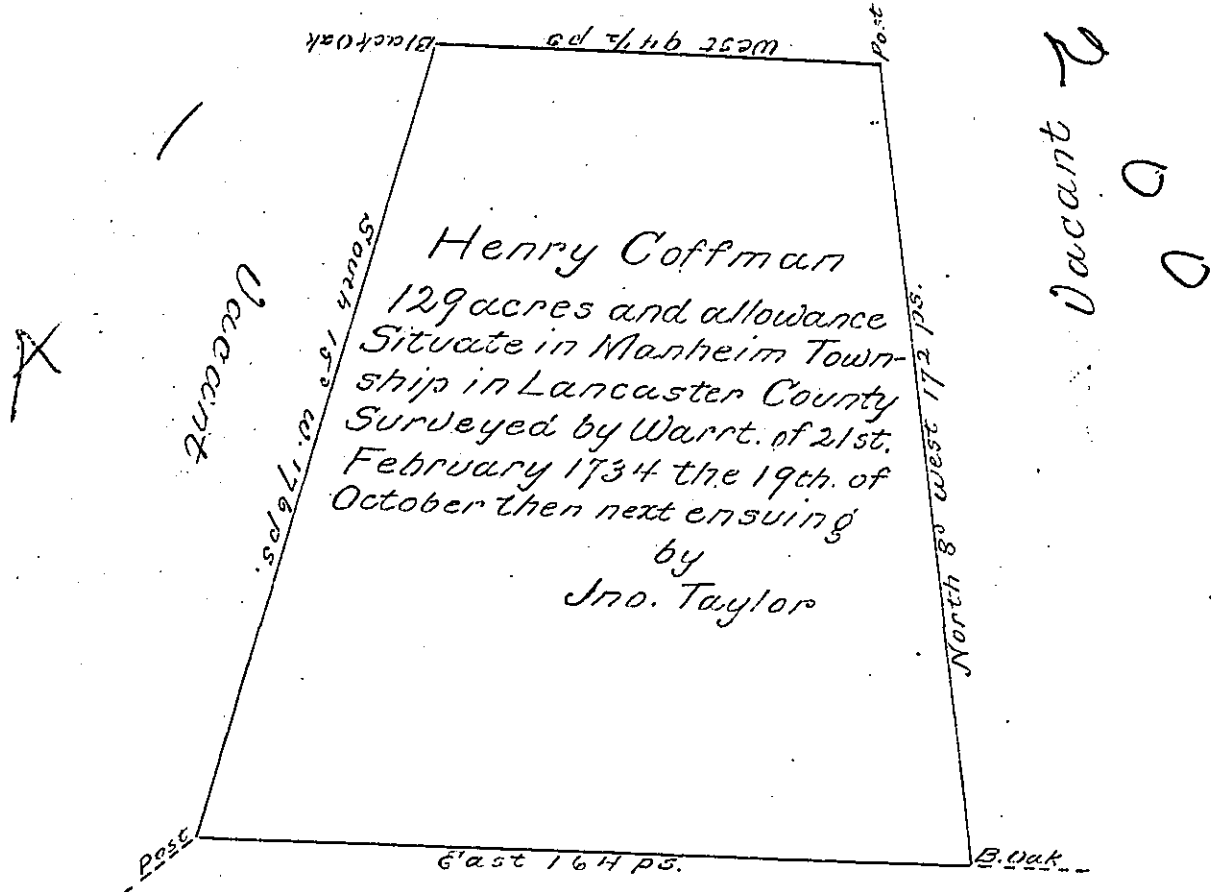 Black Oak
West 94 1/2 ps
Post
Vacant
Vacant
South 15° W. 176 ps.
North 8° West 172 ps.
Henry Coffman
129 acres and allowance
Situate in Manheim Town-
ship in Lancaster County
Surveyed by Warrt. of 21st.
February 1734 the 19th. of
October then next ensuing
by
Jno. Taylor
Post
East 164 ps.
B. Oak